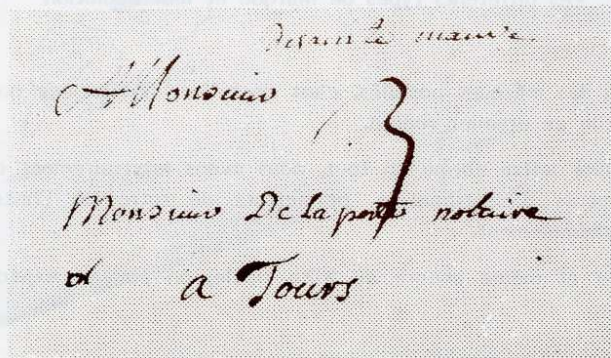 A Monsieur
3
Monsieur De la porte notaire
a Tours